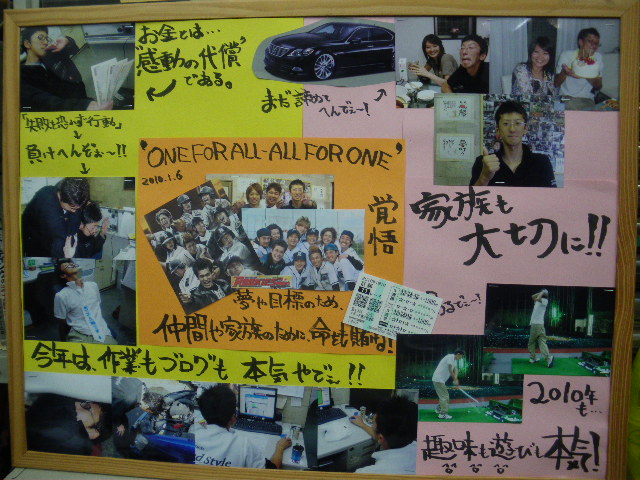 お金とは…
"感動の代償"
である。
まだ諦めて
へんでぇ〜!
「失敗を恐れず行動」
↓
負けへんでぇ〜!!
↓
'ONE FOR ALL-ALL FOR ONE'
2010.1.6
覚悟
夢や目標のため、
仲間や家族のために、命も賭ける!
家族も
大切に!!
るでぇ〜!
今年は、作業もブログも 本気やでぇ!!
d Style
2010年
も…
趣味も遊びも本気で!